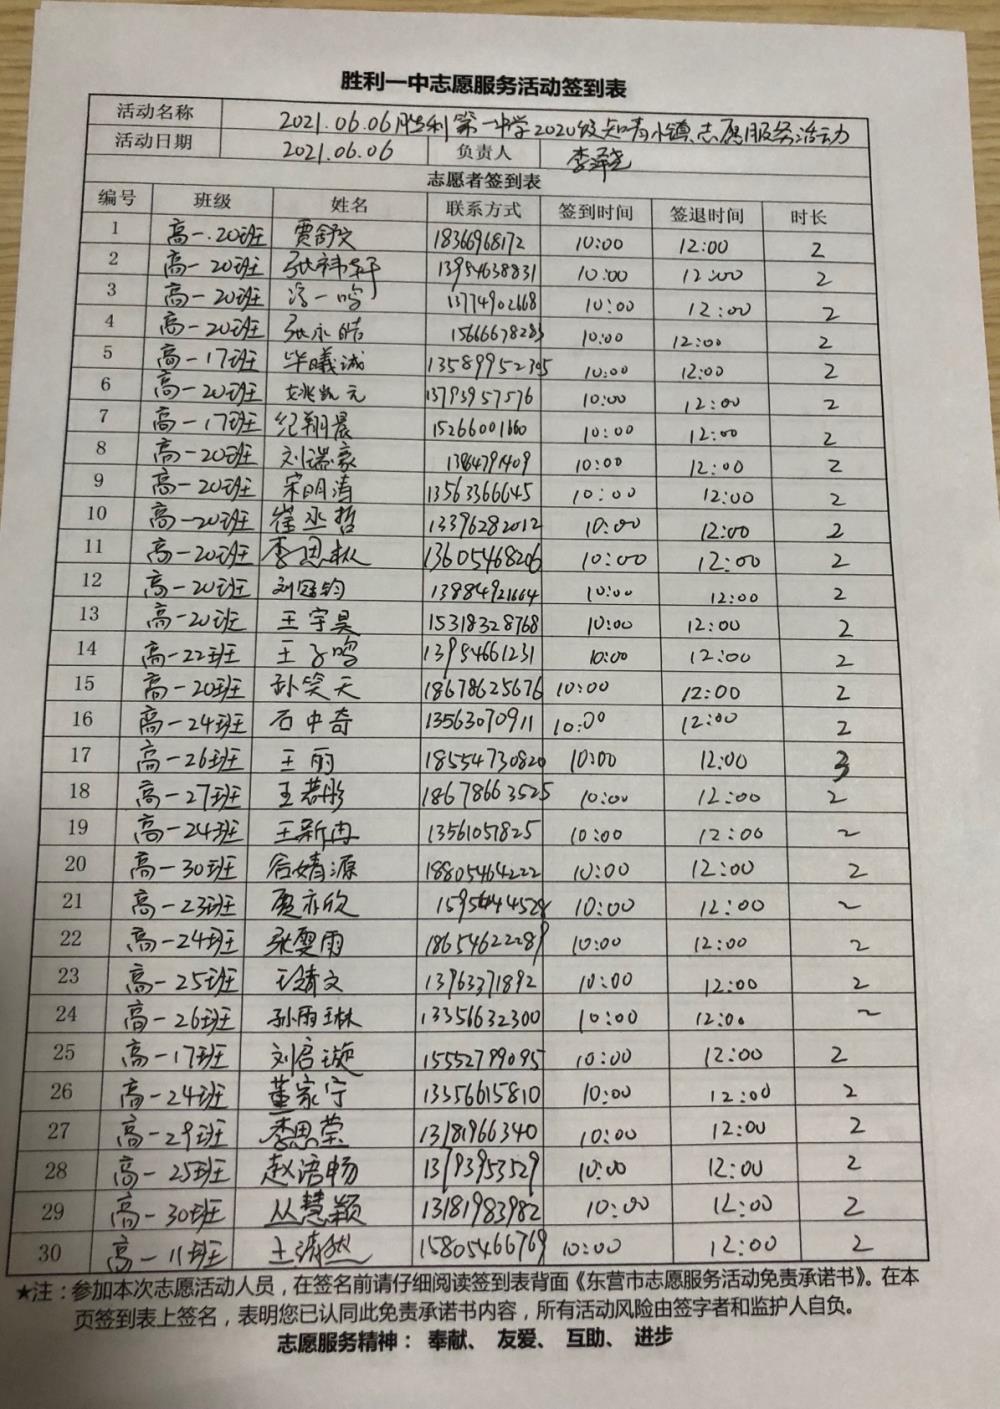 胜利一中志愿服务活动签到表
活动名称 2021.06.06胜利第一中学2020级知青小镇志愿服务活动
活动日期 2021.06.06 负责人 李泽尧
志愿者签到表
编号 班级 姓名 联系方式 签到时间 签退时间 时长
1 高一.20班 贾舒文 18366968172 10:00 12:00 2
2 高一20班 张祎轩 13954638831 10:00 12:00 2
3 高一20班 一鸣 13774902668 10:00 12:00 2
4 高一20班 张永皓 15666678283 10:00 12:00 2
5 高一17班 毕曦诚 13589952395 10:00 12:00 2
6 高一20班 姚凯元 13793957576 10:00 12:00 2
7 高一17班 纪翔晨 15266001660 10:00 12:00 2
8 高一20班 刘瑞豪 13864791409 10:00 12:00 2
9 高一20班 宋明清 13563366645 10:00 12:00 2
10 高一20班 崔丞哲 13396282012 10:00 12:00 2
11 高一20班 李思枞 13605468206 10:00 12:00 2
12 高一20班 刘冠钧 13884921664 10:00 12:00 2
13 高一20班 王宇昊 15318328768 10:00 12:00 2
14 高一22班 王子鸣 13954661231 10:00 12:00 2
15 高一20班 孙笑天 18678625676 10:00 12:00 2
16 高一24班 石中奇 13563070911 10:00 12:00 2
17 高一26班 王丽 18554730820 10:00 12:00 3
18 高一27班 王若彤 18678663525 10:00 12:00 2
19 高一24班 王新冉 13561051825 10:00 12:00 2
20 高一30班 谷婧源 18805464222 10:00 12:00 2
21 高一23班 贾亦欣 10:00 12:00 2
22 高一24班 张雯雨 18654622289 10:00 12:00 2
23 高一25班 王婧文 13963371892 10:00 12:00 2
24 高一26班 孙雨琳 13356632300 10:00 12:00 2
25 高一17班 刘启璇 15552799095 10:00 12:00 2
26 高一24班 董家宁 13356615810 10:00 12:00 2
27 高一29班 李思莹 13181966340 10:00 12:00 2
28 高一25班 赵语畅 13793953529 10:00 12:00 2
29 高一30班 丛慧颖 13181983982 10:00 12:00 2
30 高一11班 王清然 15805466769 10:00 12:00 2
★注：参加本次志愿活动人员，在签名前请仔细阅读签到表背面《东营市志愿服务活动免责承诺书》。在本
页签到表上签名，表明您已认同此免责承诺书内容，所有活动风险由签字者和监护人自负。
志愿服务精神： 奉献、 友爱、 互助、 进步